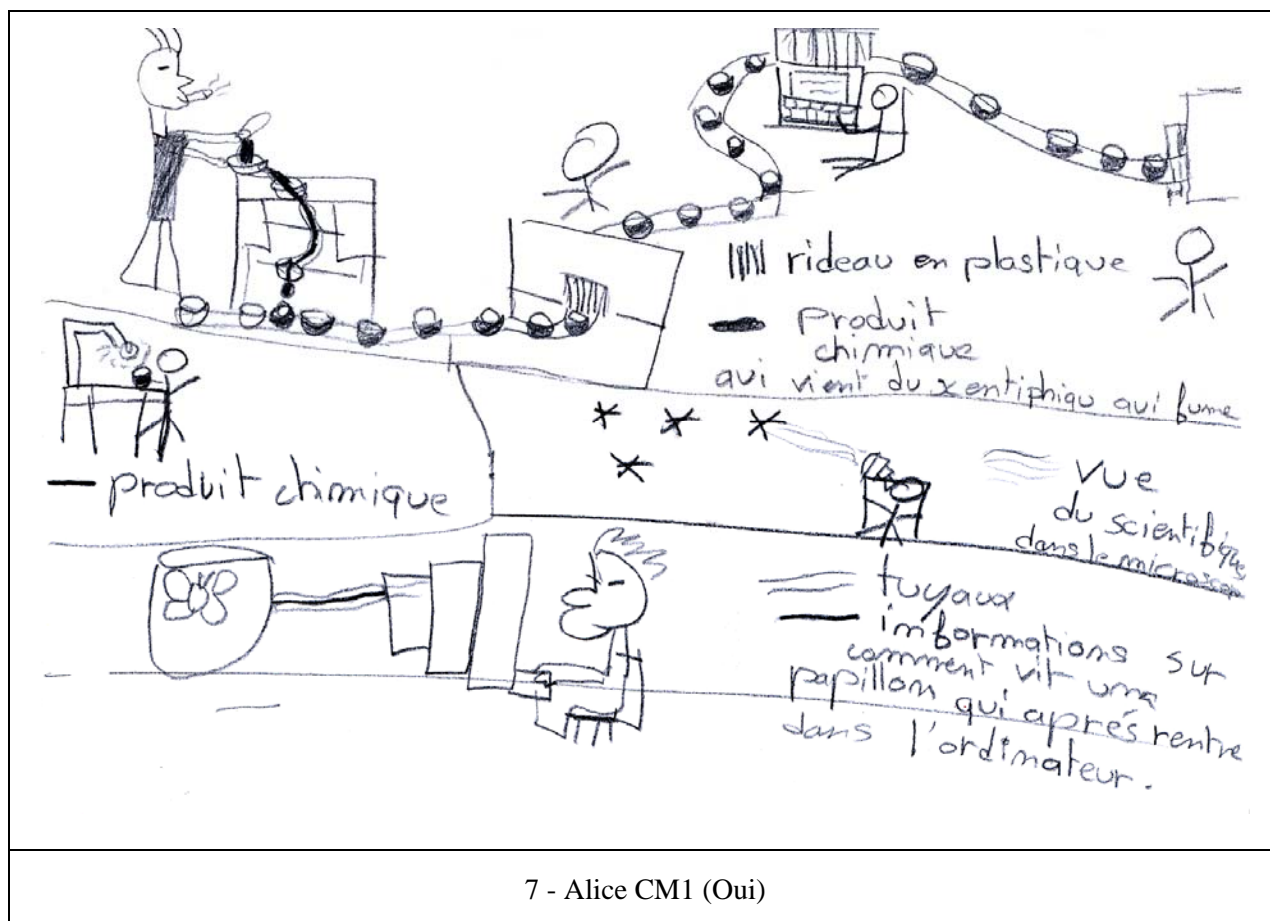 rideau en plastique
produit
chimique
qui vient du xentiphiqu qui fume
produit chimique
vue
du scientifique
dans le microscop
tuyaux
imformations sur
comment vit una
papillon qui aprés rentre
dans l'ordimateur.
7 - Alice CM1 (Oui)